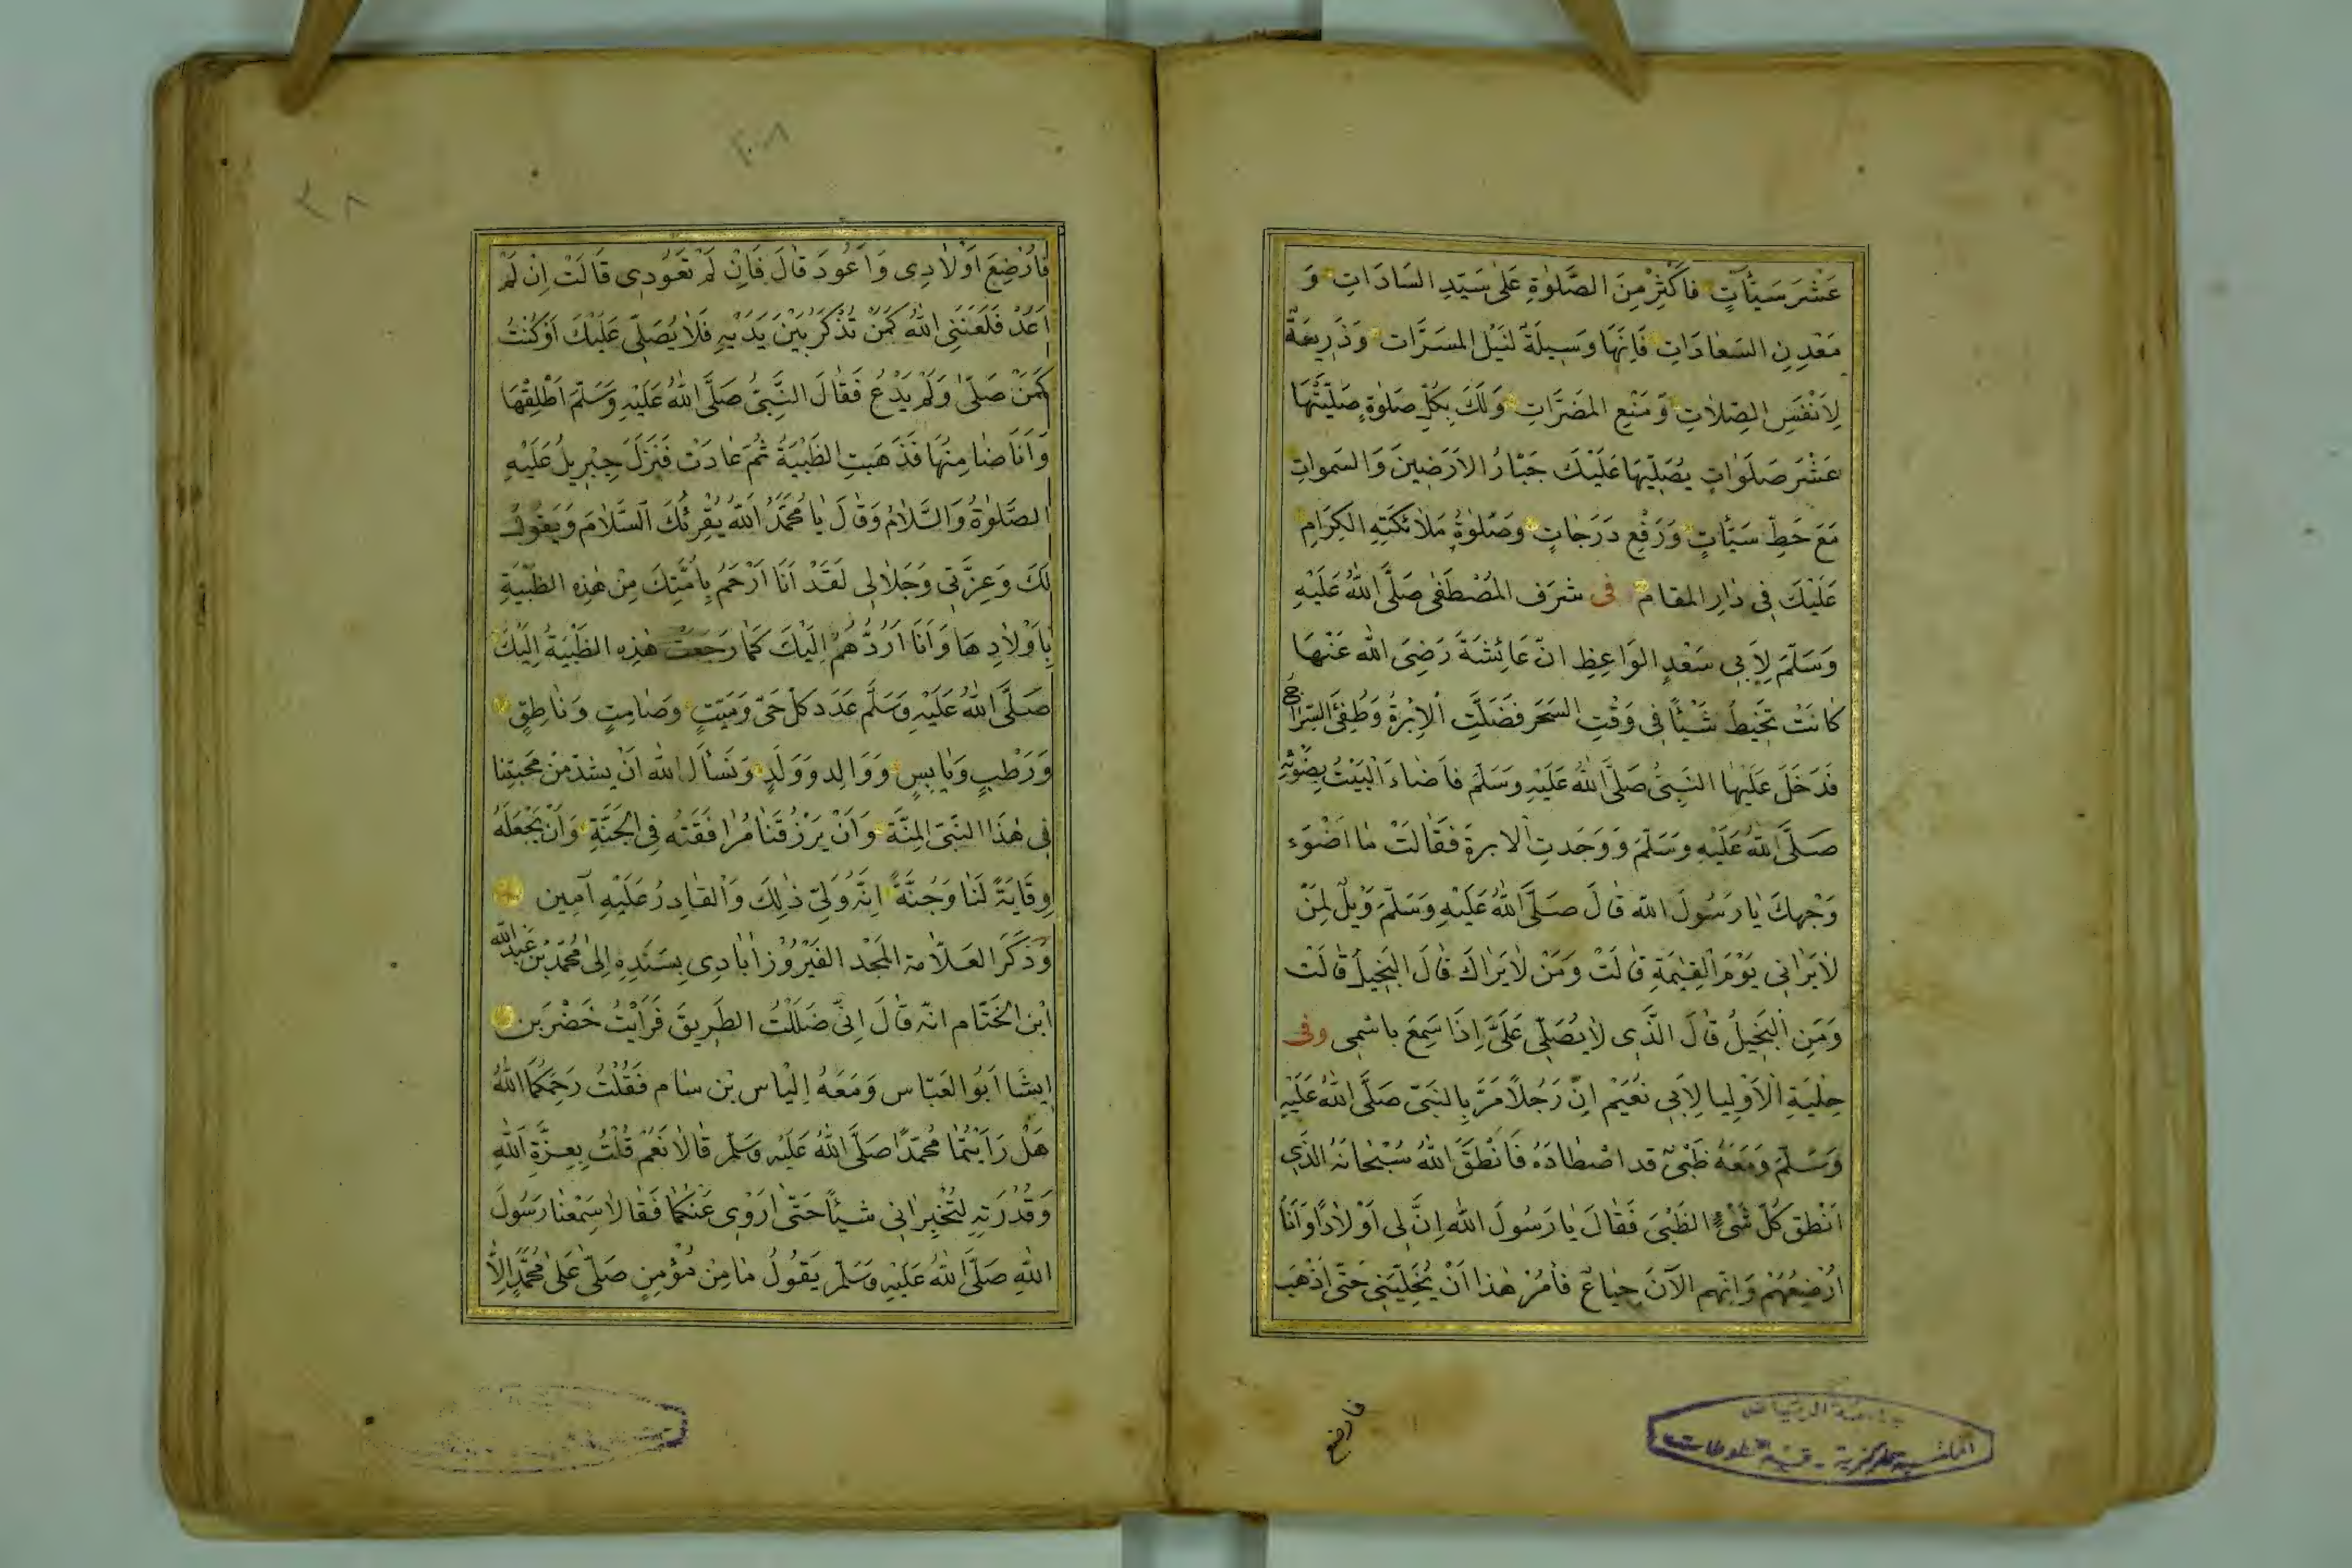 عَشْرَ سَيِّئَاتٍ فَاكْثِرْ مِنَ الصَّلٰوةِ عَلٰى سَيِّدِ السَّادَاتِ وَ
مَعْدِنِ السَّعَادَاتِ فَاِنَّهَا وَسِيلَةٌ لنَيْلِ المسَرَّات وَذَرِيعَةٌ
لِاَنْفَسِ الصِّلَاتِ وَمَنْعِ المضَرَّاتِ وَلَكَ بِكُلِّ صَلٰوةٍ صَلَّيْتَهَا
عَشْرَ صَلَوَاتٍ يُصَلِّيهَا عَلَيْكَ جَبَّارُ الاَرَضِينَ وَالسَّمواتِ
مَعَ حَطِّ سَيِّأتٍ وَرَفْعِ دَرَجَاتٍ وَصَلٰوةُ مَلَائكَتِهِ الكِرَامِ
عَلَيْكَ فِى دَارِ المقام فى شرَف المُصْطَفٰى صَلَّى اللهُ عَلَيْهِ
وَسَلَّمَ لِاَبِى سَعْدٍ الوَاعِظِ انّ عَائِشَةَ رَضِىَ الله عَنْهَا
كَانَتْ تَخِيطُ شَيْئًا فِى وَقْتِ السَّحَرِ فَضَلَّتِ الاِبْرَةُ وَطُفِئَ السِّرَاجُ
فَدَخَلَ عَلَيْهَا النَّبِىُّ صَلَّى اللهُ عَلَيْهِ وَسَلَّمَ فَاَضَاءَ الْبَيْتُ بِضَوْئِهِ
صَلَّى اللهُ عَلَيْهِ وَسَلَّمَ وَوَجَدتِ الابرةَ فَقَالَتْ مَا اَضْوَءَ
وَجْهكَ يَا رَسُولَ الله قَالَ صَلَّى اللهُ عَلَيْهِ وَسَلَّمَ وَيْلٌ لِمَنْ
لَا يَرَانِى يَوْمَ الْقِيٰمَةِ قَالَتْ وَمَنْ لَا يَرَاكَ قَالَ البَخِيلُ قَالَتْ
وَمَنِ الْبَخِيلُ قَالَ الَّذِى لَا يُصَلِّى عَلَىَّ اِذَا سَمِعَ باسْمِى وفى
حِلْيَةِ الْاَوْلِيا لِاَبِى نُعَيْم اِنَّ رَجُلًا مَرَّ بِالنَّبِىّ صَلَّى اللهُ عَلَيْهِ
وَسَلَّمَ وَمَعَهُ ظَبْىٌ قد اصْطَادَهُ فَاَنْطَقَ اللهُ سُبْحَانَهُ الَّذِى
اَنْطَق كُلَّ شَىْءٍ الظَبْىَ فَقَالَ يَا رَسُولَ الله اِنَّ لِى اَوْلَادًا وَاَنَا
اُرْضِعُهُمْ وَاِنَّهم الآنَ جِيَاعٌ فأمُرْ هٰذا اَنْ يُخَلِّيَنِى حَتّى اَذْهَبَ
فارضع
جامعة الرياض
المكتبة المركزية - قسم المخطوطات
٢٠٨
٣٨
فَاُرْضِعَ اَوْلَادِى وَاَعُودَ قَالَ فَاِنْ لَمْ تَعُودِى قَالَتْ اِنْ لَمْ
اَعُدْ فَلَعَنَنِى اللهُ كَمَنْ تُذْكَرُ بَيْنَ يَدَيْهِ فَلَا يُصَلِّى عَلَيْكَ اَوْ كُنْتُ
كَمَنْ صَلّٰى وَلَمْ يَدْعُ فَقَالَ النَّبِىُّ صَلَّى اللهُ عَلَيْهِ وَسَلَّمَ اَطْلِقْهَا
وَاَنَا ضَامِنُهَا فَذَهَبَتِ الظَبْيَةُ ثُمَّ عَادَتْ فَنَزَلَ جِبْرِيلُ عَلَيْهِ
الصَّلٰوةُ وَالسَّلَامُ وَقَالَ يَا مُحَمَّدُ اَللهُ يُقْرِئُكَ السَّلَامَ وَيَقُولُ
لَكَ وَعِزَّتِى وَجَلَالِى لَقَدْ اَنَا اَرْحَمُ بِاُمَّتِكَ مِنْ هٰذِهِ الظَّبْيَةِ
بِاَوْلَادِهَا وَاَنَا اَرُدُّهُمْ اِلَيْكَ كَمَا رَجَعَتْ هٰذِهِ الظَبْيَةُ اِلَيْكَ
صَلَّى اللهُ عَلَيْهِ وَسَلَّمَ عَدَدَ كلّ حَىّ وَمَيّتٍ وصَامِتٍ وَنَاطِقٍ
وَرَطْبٍ وَيَابِسٍ وَوَالِدٍ وَوَلَدٍ وَنَسْأَلُ الله اَنْ يشدّ مِنْ مَحَبَّتِنَا
فِى هٰذَا النَّبِىّ المِنَّة وَاَنْ يَرْزُقَنَا مُرَافَقَتَهُ فِى الجَنَّةِ وَاَنْ يَجْعَلَهُ
وِقَايَةً لَنَا وَجُنَّةً اِنَّهُ وَلِىّ ذٰلِكَ وَالقَادِرُ عَلَيْهِ آمِين
وَذَكَرَ العَلَّامة المَجْد الفَيْرُوزْاَبَادِى بِسَنَدِهِ اِلٰى مُحَمَّدْ بْن عَبْدِ الله
ابْن الخَتَّام انه قَالَ اِنّى ضَلَلْتُ الطَرِيقَ فَرَأَيْتُ خَضْرَ بن
اِيشَا اَبُو العَبَّاس وَمَعَهُ اِلْيَاس بْن سَام فَقُلْتُ رَحِمَكُمَا اللهُ
هَلْ رَاَيْتُمَا مُحَمّدًا صَلَّى اللهُ عَلَيْهِ وَسَلّمَ قَالَا نَعَمْ قُلْتُ بِعِزَّةِ اللهِ
وَقُدْرَتِهِ لتُخْبِرَانِى شيئًا حَتّى اَرْوِى عَنْكُمَا فَقَالَا سَمِعْنَا رَسُولَ
اللهِ صَلَّى اللهُ عَلَيْهِ وَسَلَّمَ يَقُولُ مَا مِنْ مُؤْمِنٍ صَلّٰى عَلٰى مُحَمَّدٍ اِلَّا